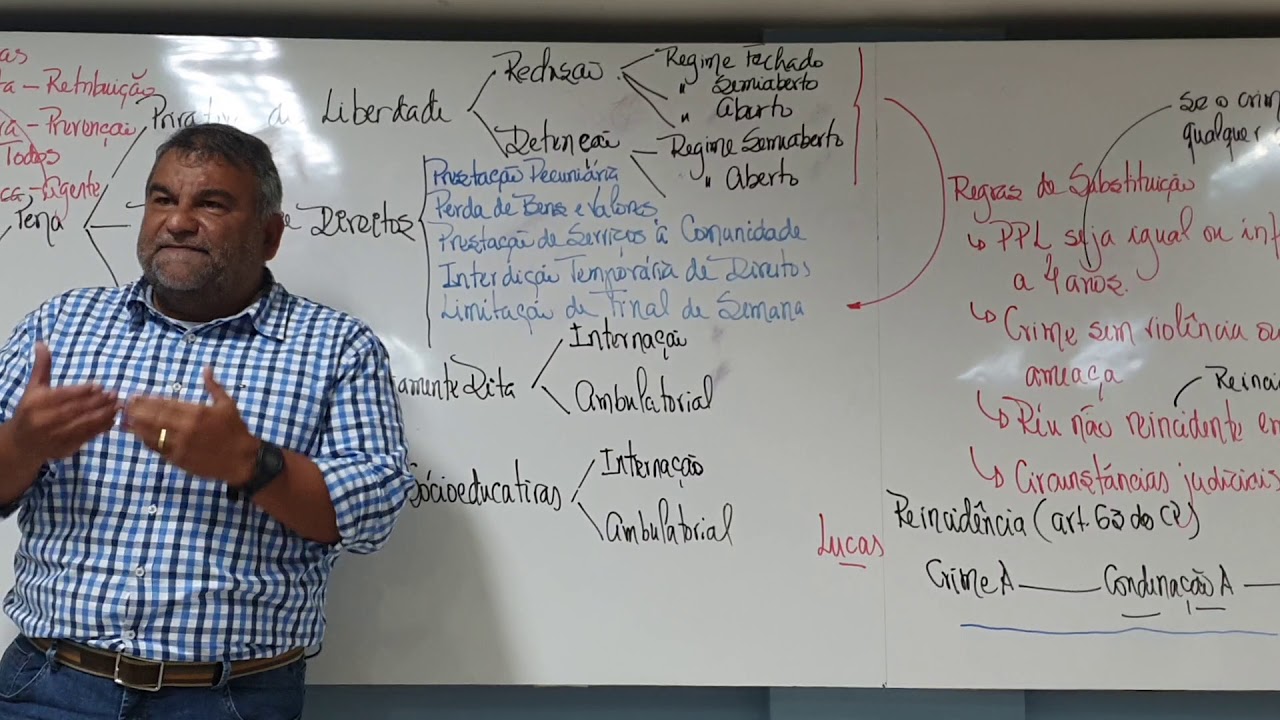 as
ta - Retribuição
ra - Prevenção
Todos
ca - Agente
Pena
Privativa de Liberdade
Reclusão
Regime Fechado
" Semiaberto
" Aberto
Detenção
Regime Semiaberto
" Aberto
e Direitos
Prestação Pecuniária
Perda de Bens e Valores
Prestação de Serviços à Comunidade
Interdição Temporária de Direitos
Limitação de Final de Semana
amente Dita
Internação
Ambulatorial
Sócioeducativas
Internação
Ambulatorial
Se o crim
qualquer
Regras de Substituição
↳ PPL seja igual ou inf
a 4 anos.
↳ Crime sem violência ou
ameaça
Reinci
↳ Réu não reincidente em
↳ Circunstâncias judiciais
Lucas
Reincidência (art. 63 do CP)
Crime A — Condenação A —